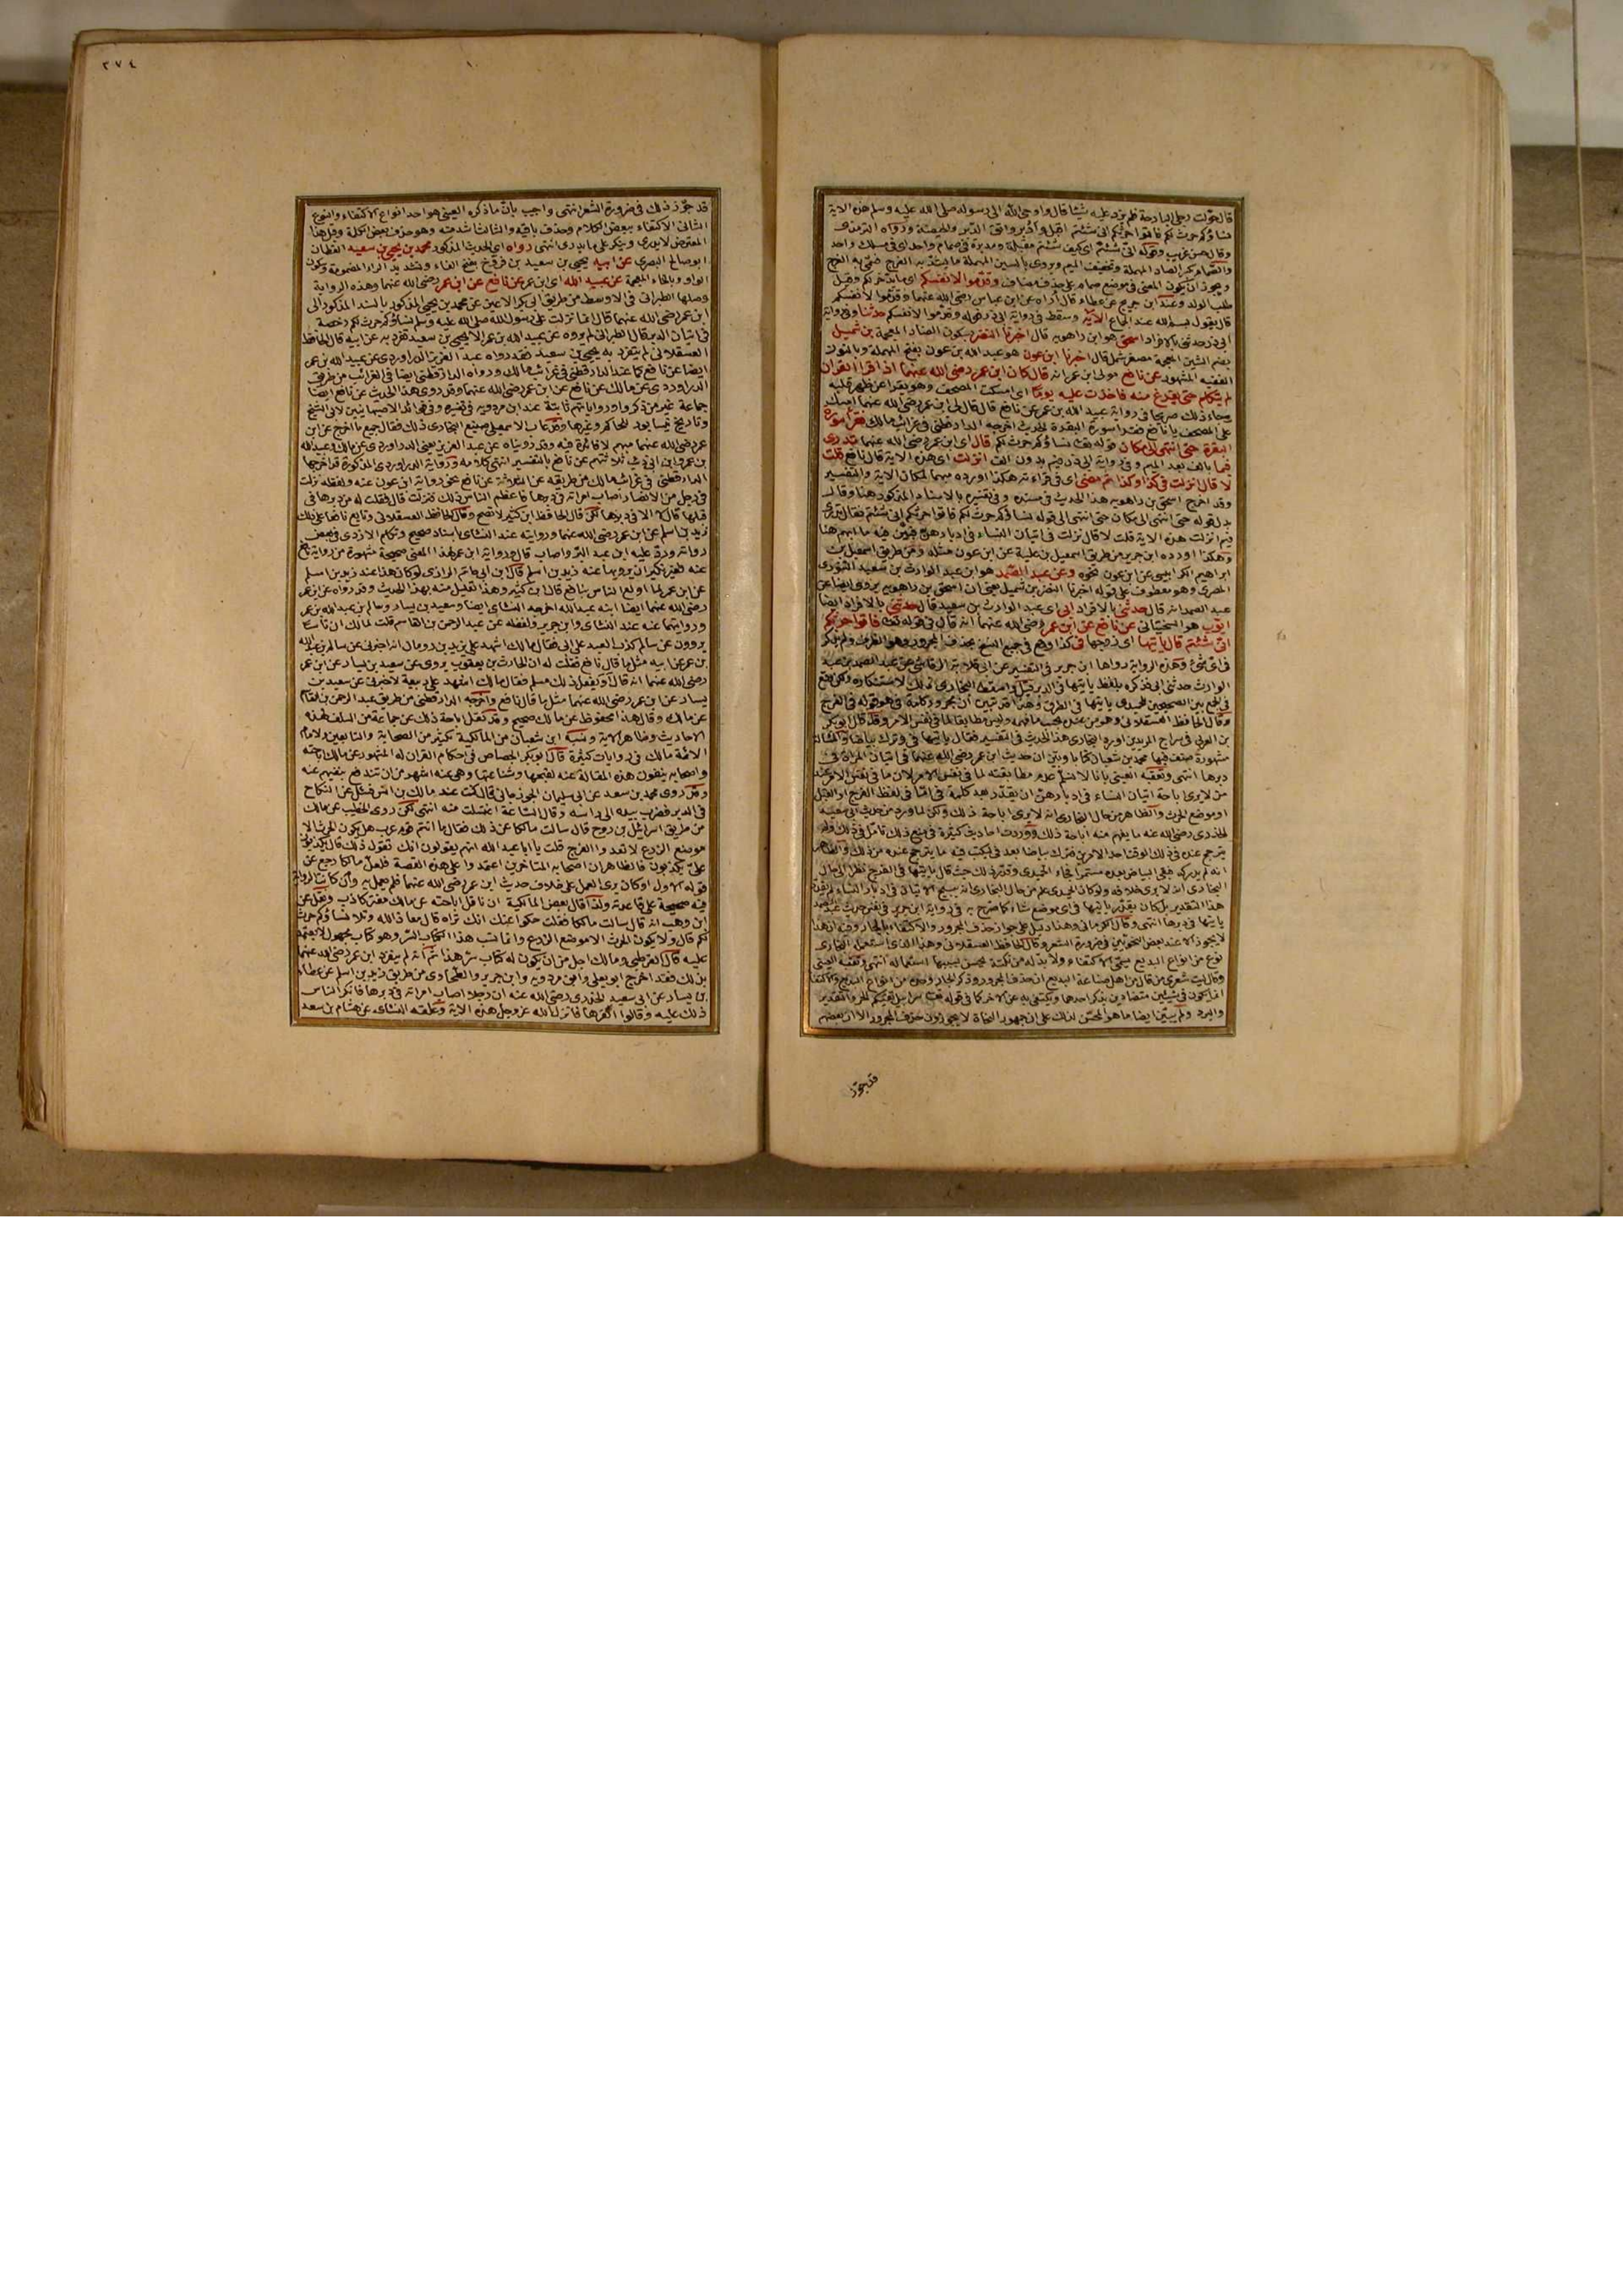 قال حولت رحلي البارحة فلم يرد عليه شيئا قال واوحى الله الى رسوله صلى الله عليه وسلم هذه الاية
نساؤكم حرث لكم فأتوا حرثكم انى شئتم اقبل وادبر واتق الدبر والحيضة ورواه الترمذي
وقال حسن غريب وقوله انى شئتم اى كيف شئتم مقبلة ومدبرة في صمام واحد اى في مسلك واحد
والصمام بكسر الصاد المهملة وتخفيف الميم ويروى بالسين المهملة ما يسد به الفرج فسمى به الفرج
ويجوز ان يكون المعنى في موضع صمام على حذف مضاف وقدموا لانفسكم اى ما يدخر لكم وقيل
طلب الولد وعند ابن جرير عن عطاء قال اراه عن ابن عباس رضى الله عنهما وقدموا لانفسكم
قال يقول بسم الله عند الجماع الاية وسقط في رواية ابى ذر قوله وقدموا لانفسكم حدثنا وفي رواية
ابى ذر حدثنى بالافراد اسحق هو ابن راهويه قال اخبرنا النضر بسكون الضاد المعجمة بن شميل
بضم الشين المعجمة مصغر شمل قال اخبرنا ابن عون هو عبد الله بن عون بفتح المهملة وبالنون
الفقيه المشهور عن نافع مولى ابن عمر انه قال كان ابن عمر رضى الله عنهما اذا قرأ القران
لم يتكلم حتى يفرغ منه فاخذت عليه يوما اى امسكت المصحف وهو يقرأ عن ظهر قلبه
وجاء ذلك صريحا في رواية عبيد الله بن عمر عن نافع قال قال لى ابن عمر رضى الله عنهما امسك
على المصحف يا نافع فقرأ سورة البقرة الحديث اخرجه الدارقطنى في غرائب مالك فقرأ سورة
البقرة حتى انتهى الى مكان قوله تعالى نساؤكم حرث لكم قال اى ابن عمر رضى الله عنهما تدرى
فيما بالف بعد الميم وفي رواية ابى ذر فيم بدون الف انزلت اى هذه الاية قال نافع قلت
لا قال انزلت في كذا وكذا ثم مضى اى في قراءته هكذا اورده مبهما لمكان الاية والتفسير
وقد اخرج اسحق بن راهويه هذا الحديث في مسنده وفي تفسيره بالاسناد المذكور هنا وقال
بدل قوله حتى انتهى الى مكان حتى انتهى الى قوله نساؤكم حرث لكم فأتوا حرثكم انى شئتم فقال اتدرى
فيم انزلت هذه الاية قلت لا قال نزلت في اتيان النساء في ادبارهن فبين فيه ما ابهم هنا
وهكذا اورده ابن جرير من طريق اسمعيل بن علية عن ابن عون مثله ومن طريق اسمعيل بن
ابراهيم الكرابيسى عن ابن عون نحوه وعن عبد الصمد هو ابن عبد الوارث بن سعيد التنورى
البصرى وهو معطوف على قوله اخبرنا النضر بن شميل يعنى ان اسحق بن راهويه يروى ايضا عن
عبد الصمد انه قال حدثنى بالافراد ابى اى عبد الوارث بن سعيد قال حدثنى بالافراد ايضا
ايوب هو السختيانى عن نافع عن ابن عمر رضى الله عنهما انه قال في قوله تعالى فأتوا حرثكم
انى شئتم قال يأتيها اى زوجها في كذا وقع في جميع النسخ بحذف المجرور وهو الظرف ولم يذكر
في اى شئ وهذه الرواية رواها ابن جرير في التفسير عن ابى قلابة الرقاشى عن عبد الصمد بن عبد
الوارث حدثنى ابى فذكره بلفظ يأتيها في الدبر قيل واسقطه البخارى ذلك لاستنكاره ولكن وقع
في الجمع بين الصحيحين للحميدى يأتيها في الفرج وهذا قد تبين ان مجرور كلمة في هو قوله في الفرج
وقال الحافظ العسقلانى وهو من عنده بحسب ما فهمه وليس مطابقا لما في نفس الامر وقد قال ابو بكر
بن العربى في سراج المريدين اورد البخارى هذا الحديث في التفسير فقال يأتيها في وترك بياضا والمسألة
مشهورة صنف فيها محمد بن شعبان كتابا وبين ان حديث ابن عمر رضى الله عنهما في اتيان المرأة في
دبرها انتهى وتعقبه العينى بانا لا نسلم عدم مطابقته لما في نفس الامر لان ما في نفس الامر عند
من لا يرى اباحة اتيان النساء في ادبارهن ان يقدر بعد كلمة في اما في لفظ الفرج او القبل
او موضع الحرث والظاهر من حال البخارى انه لا يرى اباحة ذلك ولكن لما ورد من حديث ابى سعيد
الخدرى رضى الله عنه ما يفهم منه اباحة ذلك ووردت احاديث كثيرة في منع ذلك تأمل في ذلك ولم
يترجح عنده في ذلك الوقت احد الامرين فترك بياضا بعد في ليكتب فيه ما يترجح عنده من ذلك والظاهر
انه لم يدركه فبقى البياض بعده مستمرا فجاء الحميدى وقدر ذلك حيث قال يأتيها في الفرج نظرا الى حال
البخارى انه لا يرى خلافه ولو كان الحميدى علم من حال البخارى انه يبيح الاتيان في ادبار النساء لم يقدر
هذا التقدير بل كان يقدر يأتيها في اى موضع شاء كما صرح به في رواية ابن جرير في نفس حديث عبد الصمد
يأتيها في دبرها انتهى وقال الكرمانى وهذا دليل على جواز حذف المجرور والاكتفاء بالجار وفيه ان هذا
لا يجوز الا عند بعض النحويين في ضرورة الشعر وقال الحافظ العسقلانى وهذا الذى استعمله البخارى
نوع من انواع البديع يسمى الاكتفاء ولا بد له من نكتة يحسن بسببها استعماله انتهى وتعقبه العينى
وقال ليت شعرى من قال من اهل صناعة البديع ان حذف المجرور وذكر الجار وحده من انواع البديع والاكتفاء
انما يكون في شيئين متضادين يذكر احدهما ويكتفى به عن الاخر كما في قوله تعالى سرابيل تقيكم الحر والتقدير
والبرد ولم يبين ايضا ما هو المحسن لذلك على ان جمهور النحاة لا يجوزون حذف المجرور الا ان بعضهم
قد جوز
٢٧٤
قد جوز ذلك في ضرورة الشعر انتهى واجيب بان ما ذكره العينى هو احد انواع الاكتفاء والنوع
الثانى الاكتفاء ببعض الكلام وحذف باقيه والثالث اشد منه وهو حذف بعض الكلمة وقيل هذا
المعترض لا يدرى وينكر على من يدرى انتهى رواه اى الحديث المذكور محمد بن يحيى بن سعيد القطان
ابو صالح البصرى عن ابيه يحيى بن سعيد بن فروخ بفتح الفاء وتشديد الراء المضمومة وسكون
الواو وبالخاء المعجمة عن عبيد الله اى ابن عمر عن نافع عن ابن عمر رضى الله عنهما وهذه الرواية
وصلها الطبرانى في الاوسط من طريق ابى بكر الاعين عن محمد بن يحيى المذكور بالسند المذكور الى
ابن عمر رضى الله عنهما قال انما نزلت على رسول الله صلى الله عليه وسلم نساؤكم حرث لكم رخصة
في اتيان الدبر قال الطبرانى لم يروه عن عبيد الله بن عمر الا يحيى بن سعيد تفرد به عن ابيه قال الحافظ
العسقلانى لم يتفرد به يحيى بن سعيد فقد رواه عبد العزيز الدراوردى عن عبيد الله بن عمر
ايضا عن نافع كما عند الدارقطنى في غرائب مالك ورواه الدارقطنى ايضا في الغرائب من طريق
الدراوردى عن مالك عن نافع عن ابن عمر رضى الله عنهما وقد روى هذا الحديث عن نافع ايضا
جماعة غير من ذكروا ورواياتهم ثابتة عند ابن مردويه في تفسيره وفي فوائد الاصبهانيين لابى الشيخ
وتاريخ نيسابور للحاكم وغيرها وقد عاب الاسمعيلى صنيع البخارى ذلك فقال جميع ما اخرج عن ابن
عمر رضى الله عنهما مبهم لا فائدة فيه وقد رويناه عن عبد العزيز يعنى الدراوردى عن مالك وعبيد الله
بن عمر وابن ابى ذئب ثلاثتهم عن نافع بالتفسير انتهى كلامه ورواية الدراوردى المذكورة قد اخرجها
الدارقطنى في غرائب مالك من طريقه عن الثلاثة عن نافع نحو رواية ابن عون عنه ولفظه نزلت
في رجل من الانصار اصاب امرأته في دبرها فاعظم الناس ذلك فنزلت قال فقلت له من دبرها في
قبلها قال لا الا في دبرها لكن قال الحافظ ابن كثير لا تصح وقال الحافظ العسقلانى وتابع نافعا على ذلك
زيد بن اسلم عن ابن عمر رضى الله عنهما وروايته عند النسائى باسناد صحيح وتكلم الازدى في بعض
رواته ورد عليه ابن عبد البر واصاب قال ورواية ابن عمر لهذا المعنى صحيحة مشهورة من رواية نافع
عنه فغير نكير ان يرويها عنه زيد بن اسلم قال ابن ابى حاتم الرازى لو كان هذا عند زيد بن اسلم
عن ابن عمر لما اولع الناس بنافع قال ابن كثير وهذا تعليل منه لهذا الحديث وقد رواه عن ابن عمر
رضى الله عنهما ايضا ابنه عبد الله اخرجه النسائى ايضا وسعيد بن يسار وسالم بن عبد الله بن عمر
وروايتهما عنه عند النسائى وابن جرير ولفظه عن عبد الرحمن بن القاسم قلت لمالك ان ناسا
يروون عن سالم كذب العبد على ابى فقال مالك اشهد على يزيد بن رومان انه اخبرنى عن سالم بن عبد الله
بن عمر عن ابيه مثل ما قال نافع فقلت له ان الحارث بن يعقوب يروى عن سعيد بن يسار عن ابن عمر
رضى الله عنهما انه قال او يفعل ذلك مسلم فقال مالك اشهد على ربيعة لاخبرنى عن سعيد بن
يسار عن ابن عمر رضى الله عنهما مثل ما قال نافع واخرجه الدارقطنى من طريق عبد الرحمن بن القاسم
عن مالك وقال هذا محفوظ عن مالك صحيح وقد نقل اباحة ذلك عن جماعة من السلف لهذه
الاحاديث وظاهر الاية ونسبه ابن شعبان من المالكية لكثير من الصحابة والتابعين ولامام
الائمة مالك في روايات كثيرة قال ابو بكر الجصاص في احكام القران له المشهور عن مالك اباحته
واصحابه ينفون هذه المقالة عنه لقبحها وشناعتها وهى عنه اشهر من ان تندفع بنفيهم عنه
وقد روى محمد بن سعد عن ابى سليمان الجوزجانى قال كنت عند مالك بن انس فسئل عن النكاح
في الدبر فضرب بيده الى راسه وقال الساعة اغتسلت منه انتهى لكن روى الخطيب عن مالك
من طريق اسرائيل بن روح قال سألت مالكا عن ذلك فقال ما انتم قوم عرب هل يكون الحرث الا
موضع الزرع لا تعدوا الفرج قلت يا ابا عبد الله انهم يقولون انك تقول ذلك قال يكذبون
على يكذبون فالظاهر ان اصحابه المتاخرين اعتمدوا على هذه القصة فلعل مالكا رجع عن
قوله الاول او كان يرى العمل على خلاف حديث ابن عمر رضى الله عنهما فلم يعمل به وان كانت الرواية
فيه صحيحة على قاعدته ولذا قال بعض المالكية ان ناقل اباحته عن مالك مفتر كاذب ونقل عن
ابن وهب انه قال سألت مالكا فقلت حكوا عنك انك تراه قال معاذ الله وتلا نساؤكم حرث
لكم قال ولا يكون الحرث الا موضع الزرع وانما نسب هذا الكتاب السر وهو كتاب مجهول لا يعتمد
عليه قال القرطبى ومالك اجل من ان يكون له كتاب سر هذا ثم انه لم يتفرد ابن عمر رضى الله عنهما
بذلك فقد اخرج ابو يعلى وابن مردويه وابن جرير والطحاوى من طريق زيد بن اسلم عن عطاء
بن يسار عن ابى سعيد الخدرى رضى الله عنه ان رجلا اصاب امرأته في دبرها فانكر الناس
ذلك عليه وقالوا اثفرها فانزل الله عز وجل هذه الاية وعلقه النسائى عن هشام بن سعد